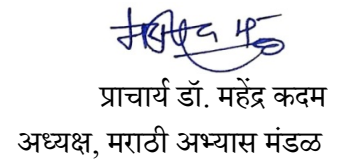 प्राचार्य डॉ. महेंद्र कदम
अध्यक्ष, मराठी अभ्यास मंडळ